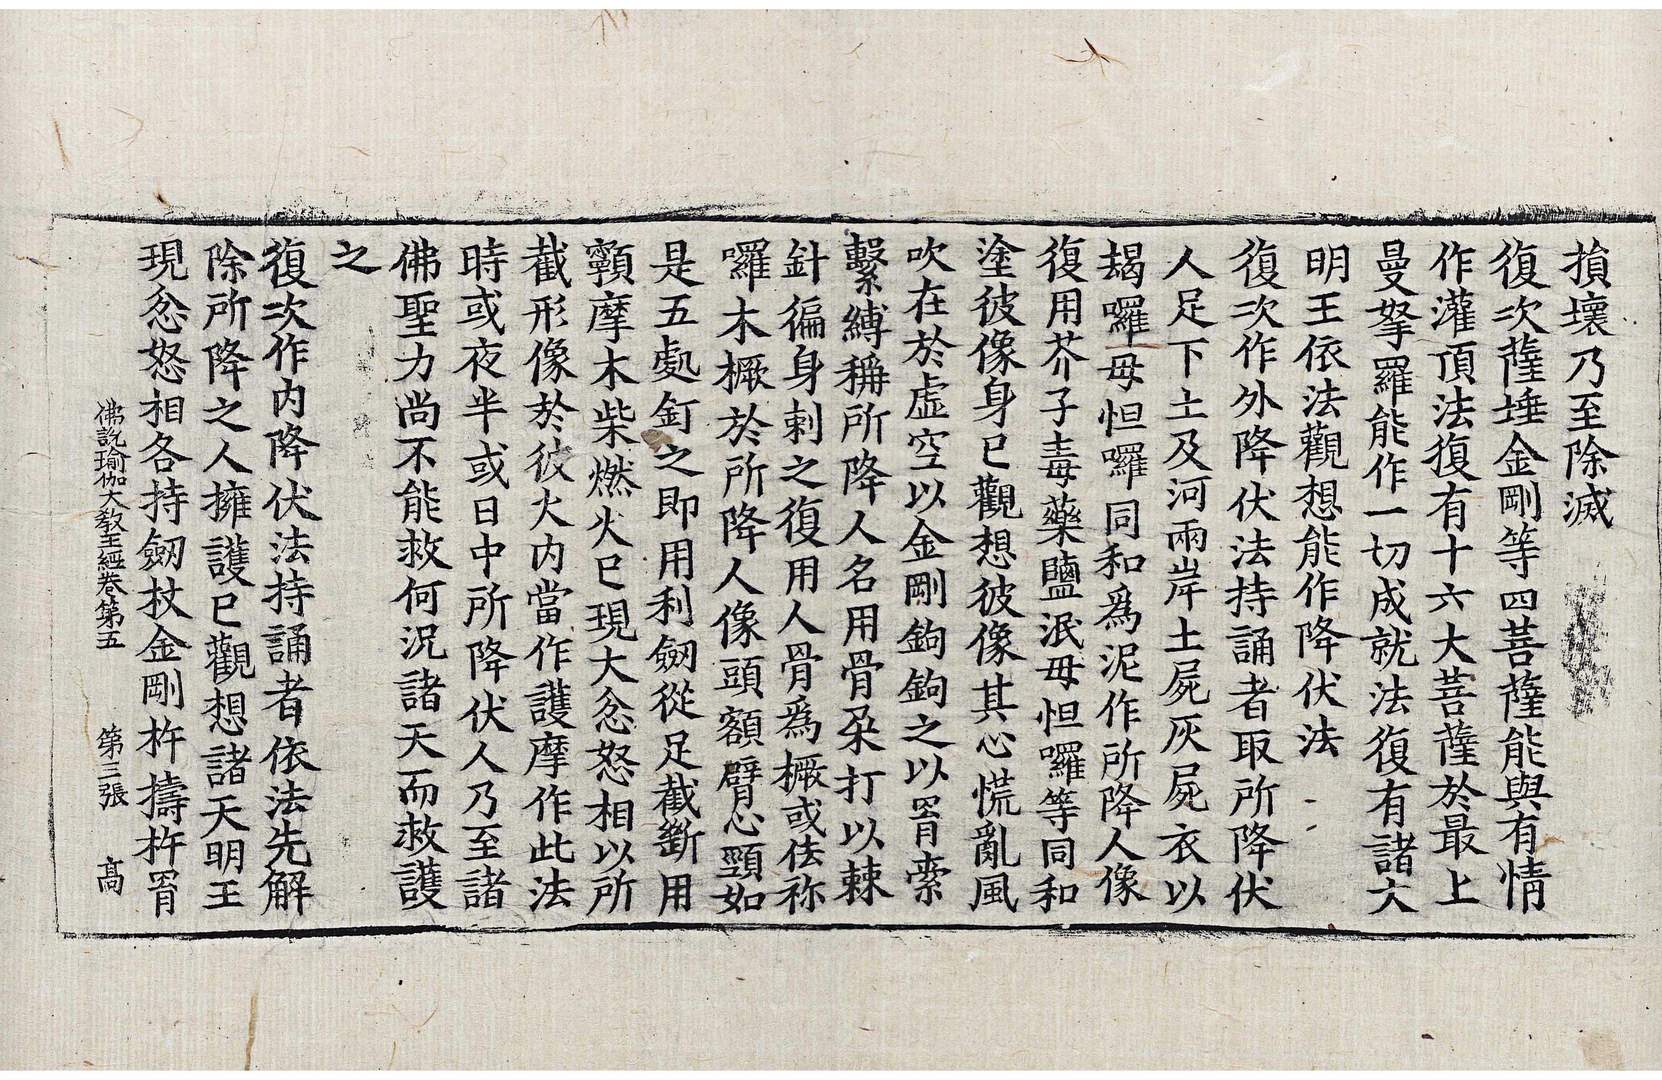 損壞乃至除滅
復次薩埵金剛等四菩薩能與有情
作灌頂法復有十六大菩薩於最上
曼拏羅能作一切成就法復有諸大
明王依法觀想能作降伏法
復次作外降伏法持誦者取所降伏
人足下土及河兩岸土屍灰屍衣以
朅囉母怛囉同和爲泥作所降人像
復用芥子毒藥鹽泯毋怛囉等同和
塗彼像身已觀想彼像其心慌亂風
吹在於虛空以金剛鉤鉤之以罥索
繫縛稱所降人名用骨朶打以棘
針徧身刺之復用人骨爲橛或佉祢
囉木橛於所降人像頭額臂心頸如
是五處釘之即用利劒從足截斷用
顙摩木柴燃火已現大忿怒相以所
截形像於彼火内當作護摩作此法
時或夜半或日中所降伏人乃至諸
佛聖力尚不能救何況諸天而救護
之
復次作内降伏法持誦者依法先解
除所降之人擁護已觀想諸天明王
現忿怒相各持劒杖金剛杵擣杵罥
佛說瑜伽大教王經卷第五　第三張　高